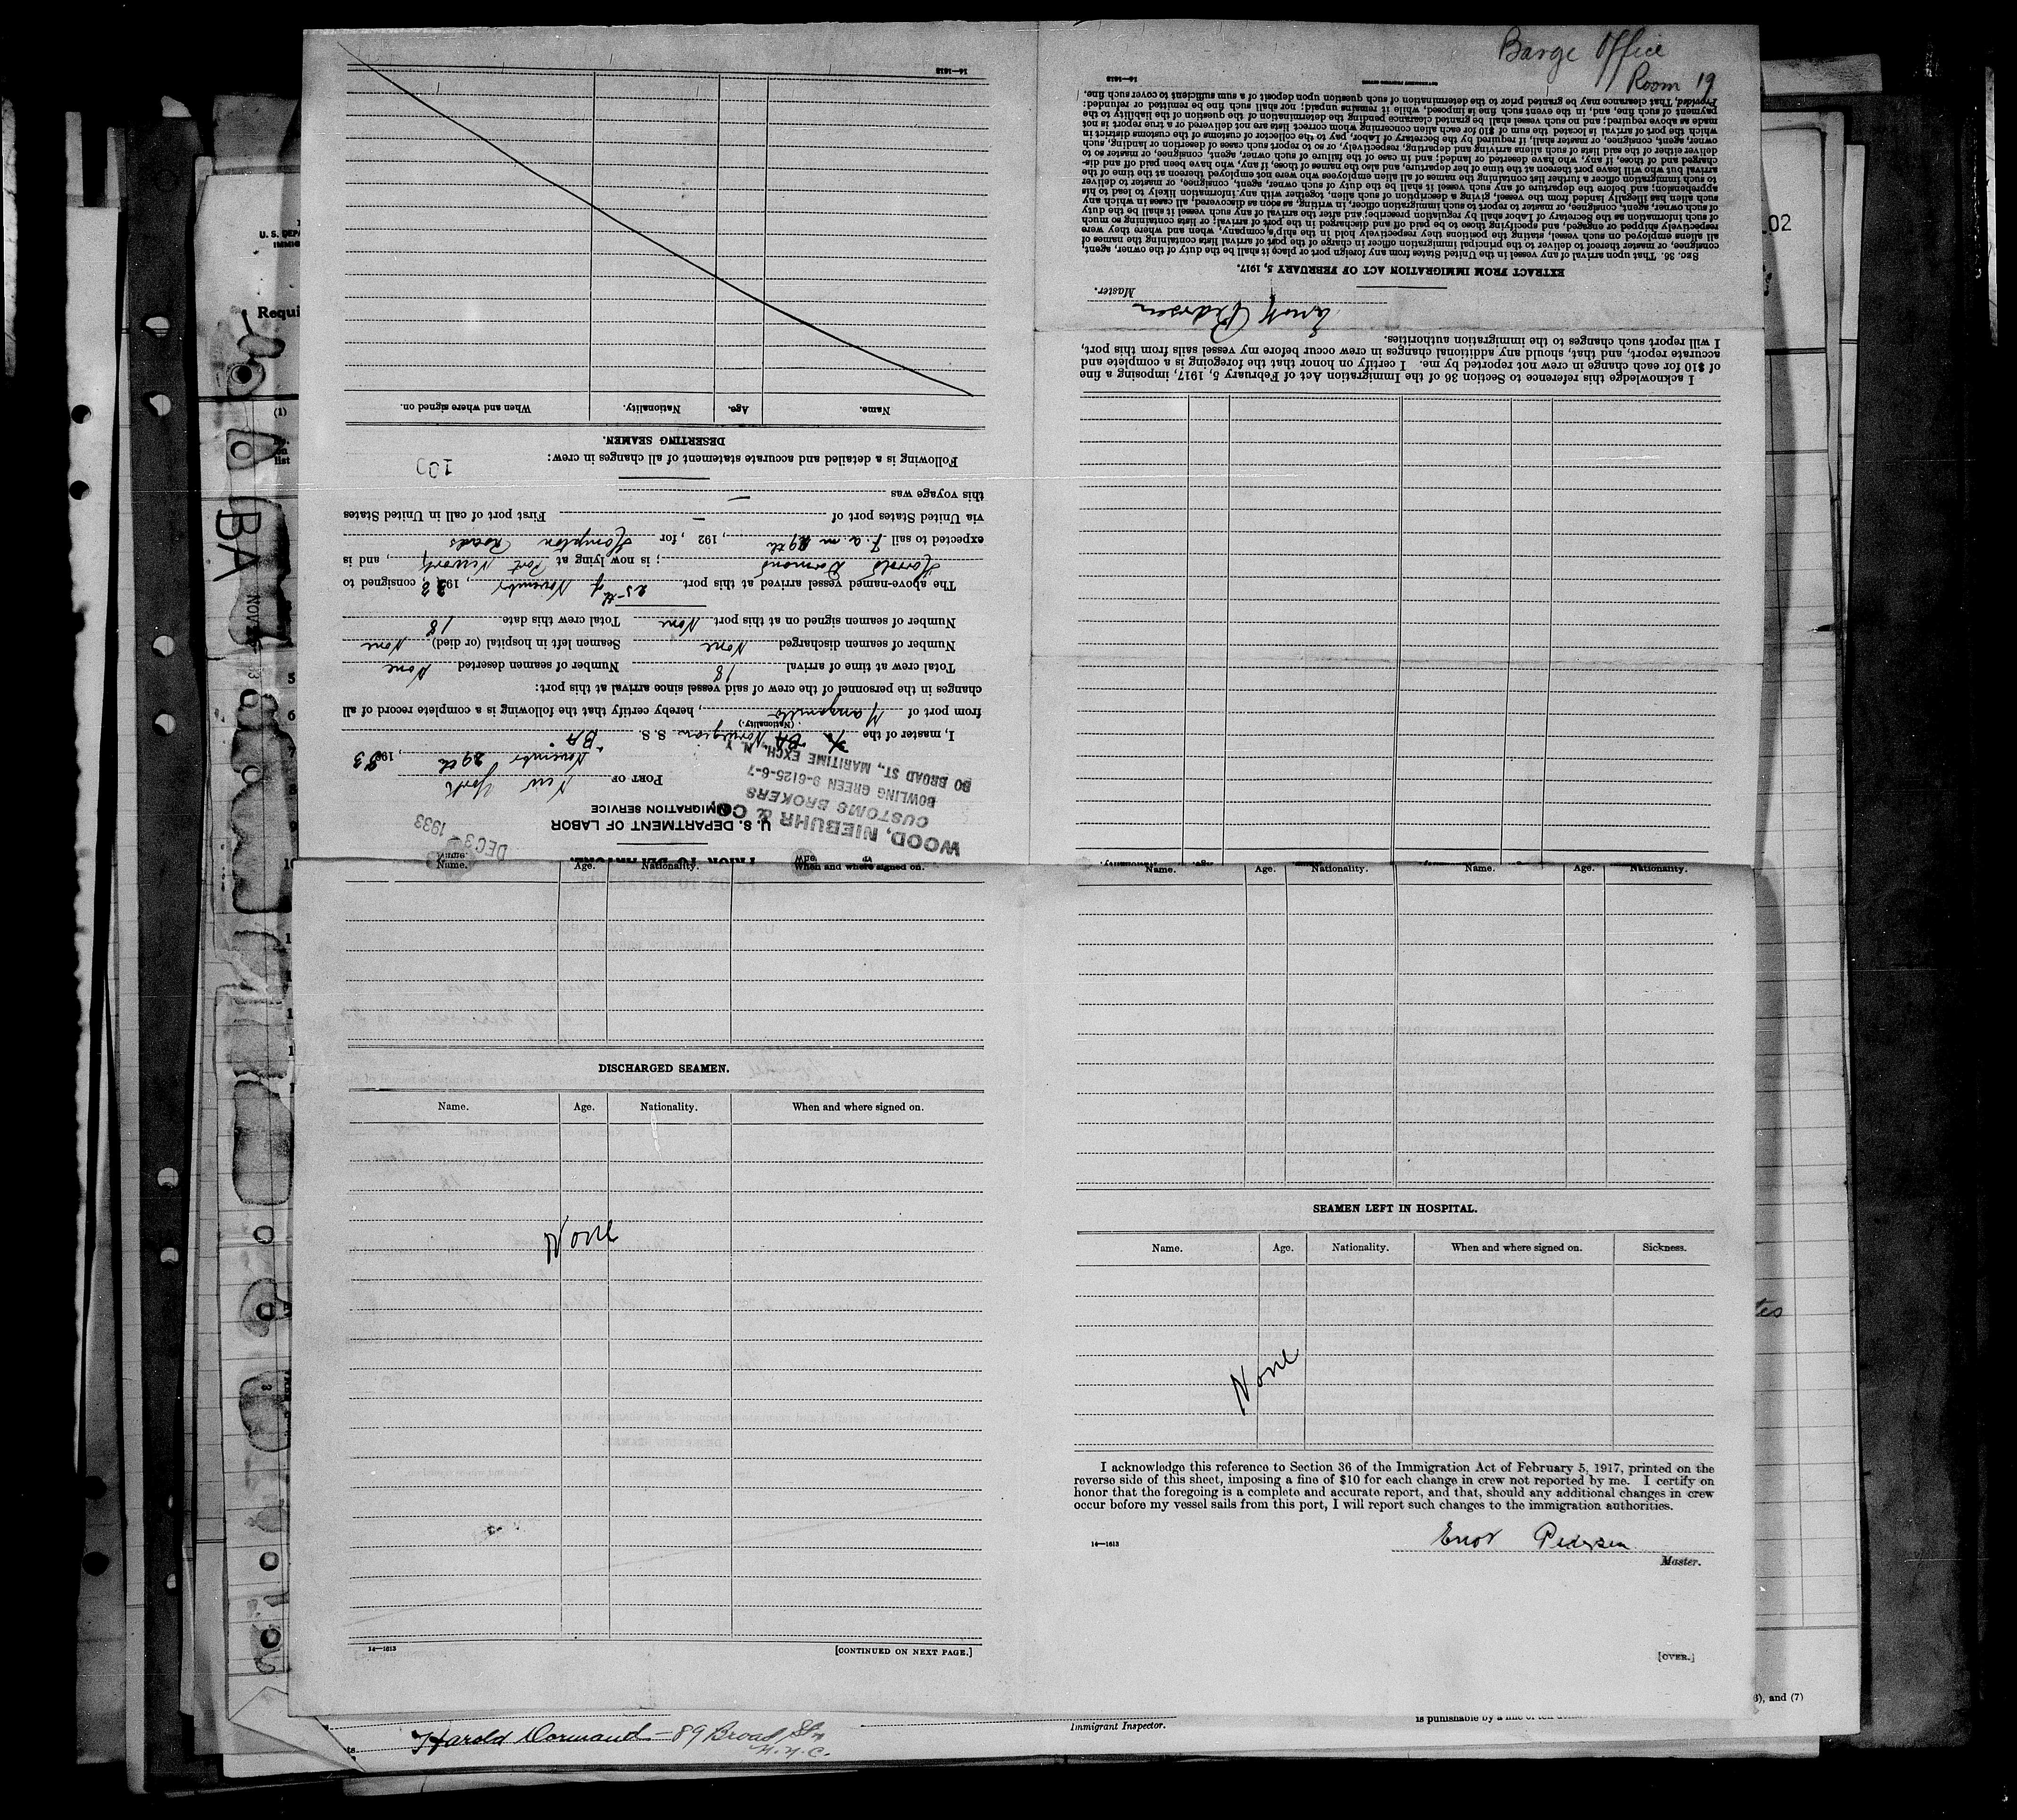 Barge Office
Room 19
14—1613
PRIOR TO DEPARTURE.
U. S. DEPARTMENT OF LABOR
IMMIGRATION SERVICE
WOOD, NIEBUHR & CO.
CUSTOMS BROKERS
BOWLING GREEN 9-6125-6-7
80 BROAD ST., MARITIME EXCH., N. Y.
DEC 3 1933
PORT OF New York
November 29th, 1933
I, master of the Norwegian S. S. "BA"
(Nationality.)
from port of Manzanillo, hereby certify that the following is a complete record of all
changes in the personnel of the crew of said vessel since arrival at this port:
Total crew at time of arrival 18 Number of seamen deserted None
Number of seamen discharged None Seamen left in hospital (or died) None
Number of seamen signed on at this port None Total crew this date 18
The above-named vessel arrived at this port 25th of November, 1933, consigned to
Harold Dormand; is now lying at Port Newark, and is
expected to sail 7. a. m 29th, 192 , for Hampton Roads
via United States port of — First port of call in United States
this voyage was —
Following is a detailed and accurate statement of all changes in crew:
100
DESERTING SEAMEN.
Name. Age. Nationality. When and where signed on.
14—1613
I acknowledge this reference to Section 36 of the Immigration Act of February 5, 1917, imposing a fine
of $10 for each change in crew not reported by me. I certify on honor that the foregoing is a complete and
accurate report, and that, should any additional changes in crew occur before my vessel sails from this port,
I will report such changes to the immigration authorities.
Pedersen
Master.
EXTRACT FROM IMMIGRATION ACT OF FEBRUARY 5, 1917.
SEC. 36. That upon arrival of any vessel in the United States from any foreign port or place it shall be the duty of the owner, agent,
consignee, or master thereof to deliver to the principal immigration officer in charge of the port of arrival lists containing the names of
all aliens employed on such vessel, stating the positions they respectively hold in the ship's company, when and where they were
respectively shipped or engaged, and specifying those to be paid off and discharged in the port of arrival; or lists containing so much
of such information as the Secretary of Labor shall by regulation prescribe; and after the arrival of any such vessel it shall be the duty
of such owner, agent, consignee, or master to report to such immigration officer, in writing, as soon as discovered, all cases in which any
such alien has illegally landed from the vessel, giving a description of such alien, together with any information likely to lead to his
apprehension; and before the departure of any such vessel it shall be the duty of such owner, agent, consignee, or master to deliver
to such immigration officer a further list containing the names of all alien employees who were not employed thereon at the time of the
arrival but who will leave port thereon at the time of her departure, and also the names of those, if any, who have been paid off and dis-
charged and of those, if any, who have deserted or landed; and in case of the failure of such owner, agent, consignee, or master so to
deliver either of the said lists of such aliens arriving and departing, respectively, or so to report such cases of desertion or landing, such
owner, agent, consignee, or master shall, if required by the Secretary of Labor, pay to the collector of customs of the customs district in
which the port of arrival is located the sum of $10 for each alien concerning whom correct lists are not delivered or a true report is not
made as above required; and no such vessel shall be granted clearance pending the determination of the question of the liability to the
payment of such fine, and, in the event such fine is imposed, while it remains unpaid; nor shall such fine be remitted or refunded:
Provided, That clearance may be granted prior to the determination of such question upon deposit of a sum sufficient to cover such fine.
14—1613
Name. Age. Nationality. When and where signed on.
DISCHARGED SEAMEN.
Name. Age. Nationality. When and where signed on.
None
14—1613
[CONTINUED ON NEXT PAGE.]
Name. Age. Nationality. Name. Age. Nationality.
SEAMEN LEFT IN HOSPITAL.
Name. Age. Nationality. When and where signed on. Sickness.
None
I acknowledge this reference to Section 36 of the Immigration Act of February 5, 1917, printed on the
reverse side of this sheet, imposing a fine of $10 for each change in crew not reported by me. I certify on
honor that the foregoing is a complete and accurate report, and that, should any additional changes in crew
occur before my vessel sails from this port, I will report such changes to the immigration authorities.
Pedersen
14—1613
Master.
[OVER.]
Harold Dormand - 89 Broad St
N.Y.C.
Immigrant Inspector.
6), and (7)
Requi
BA
02